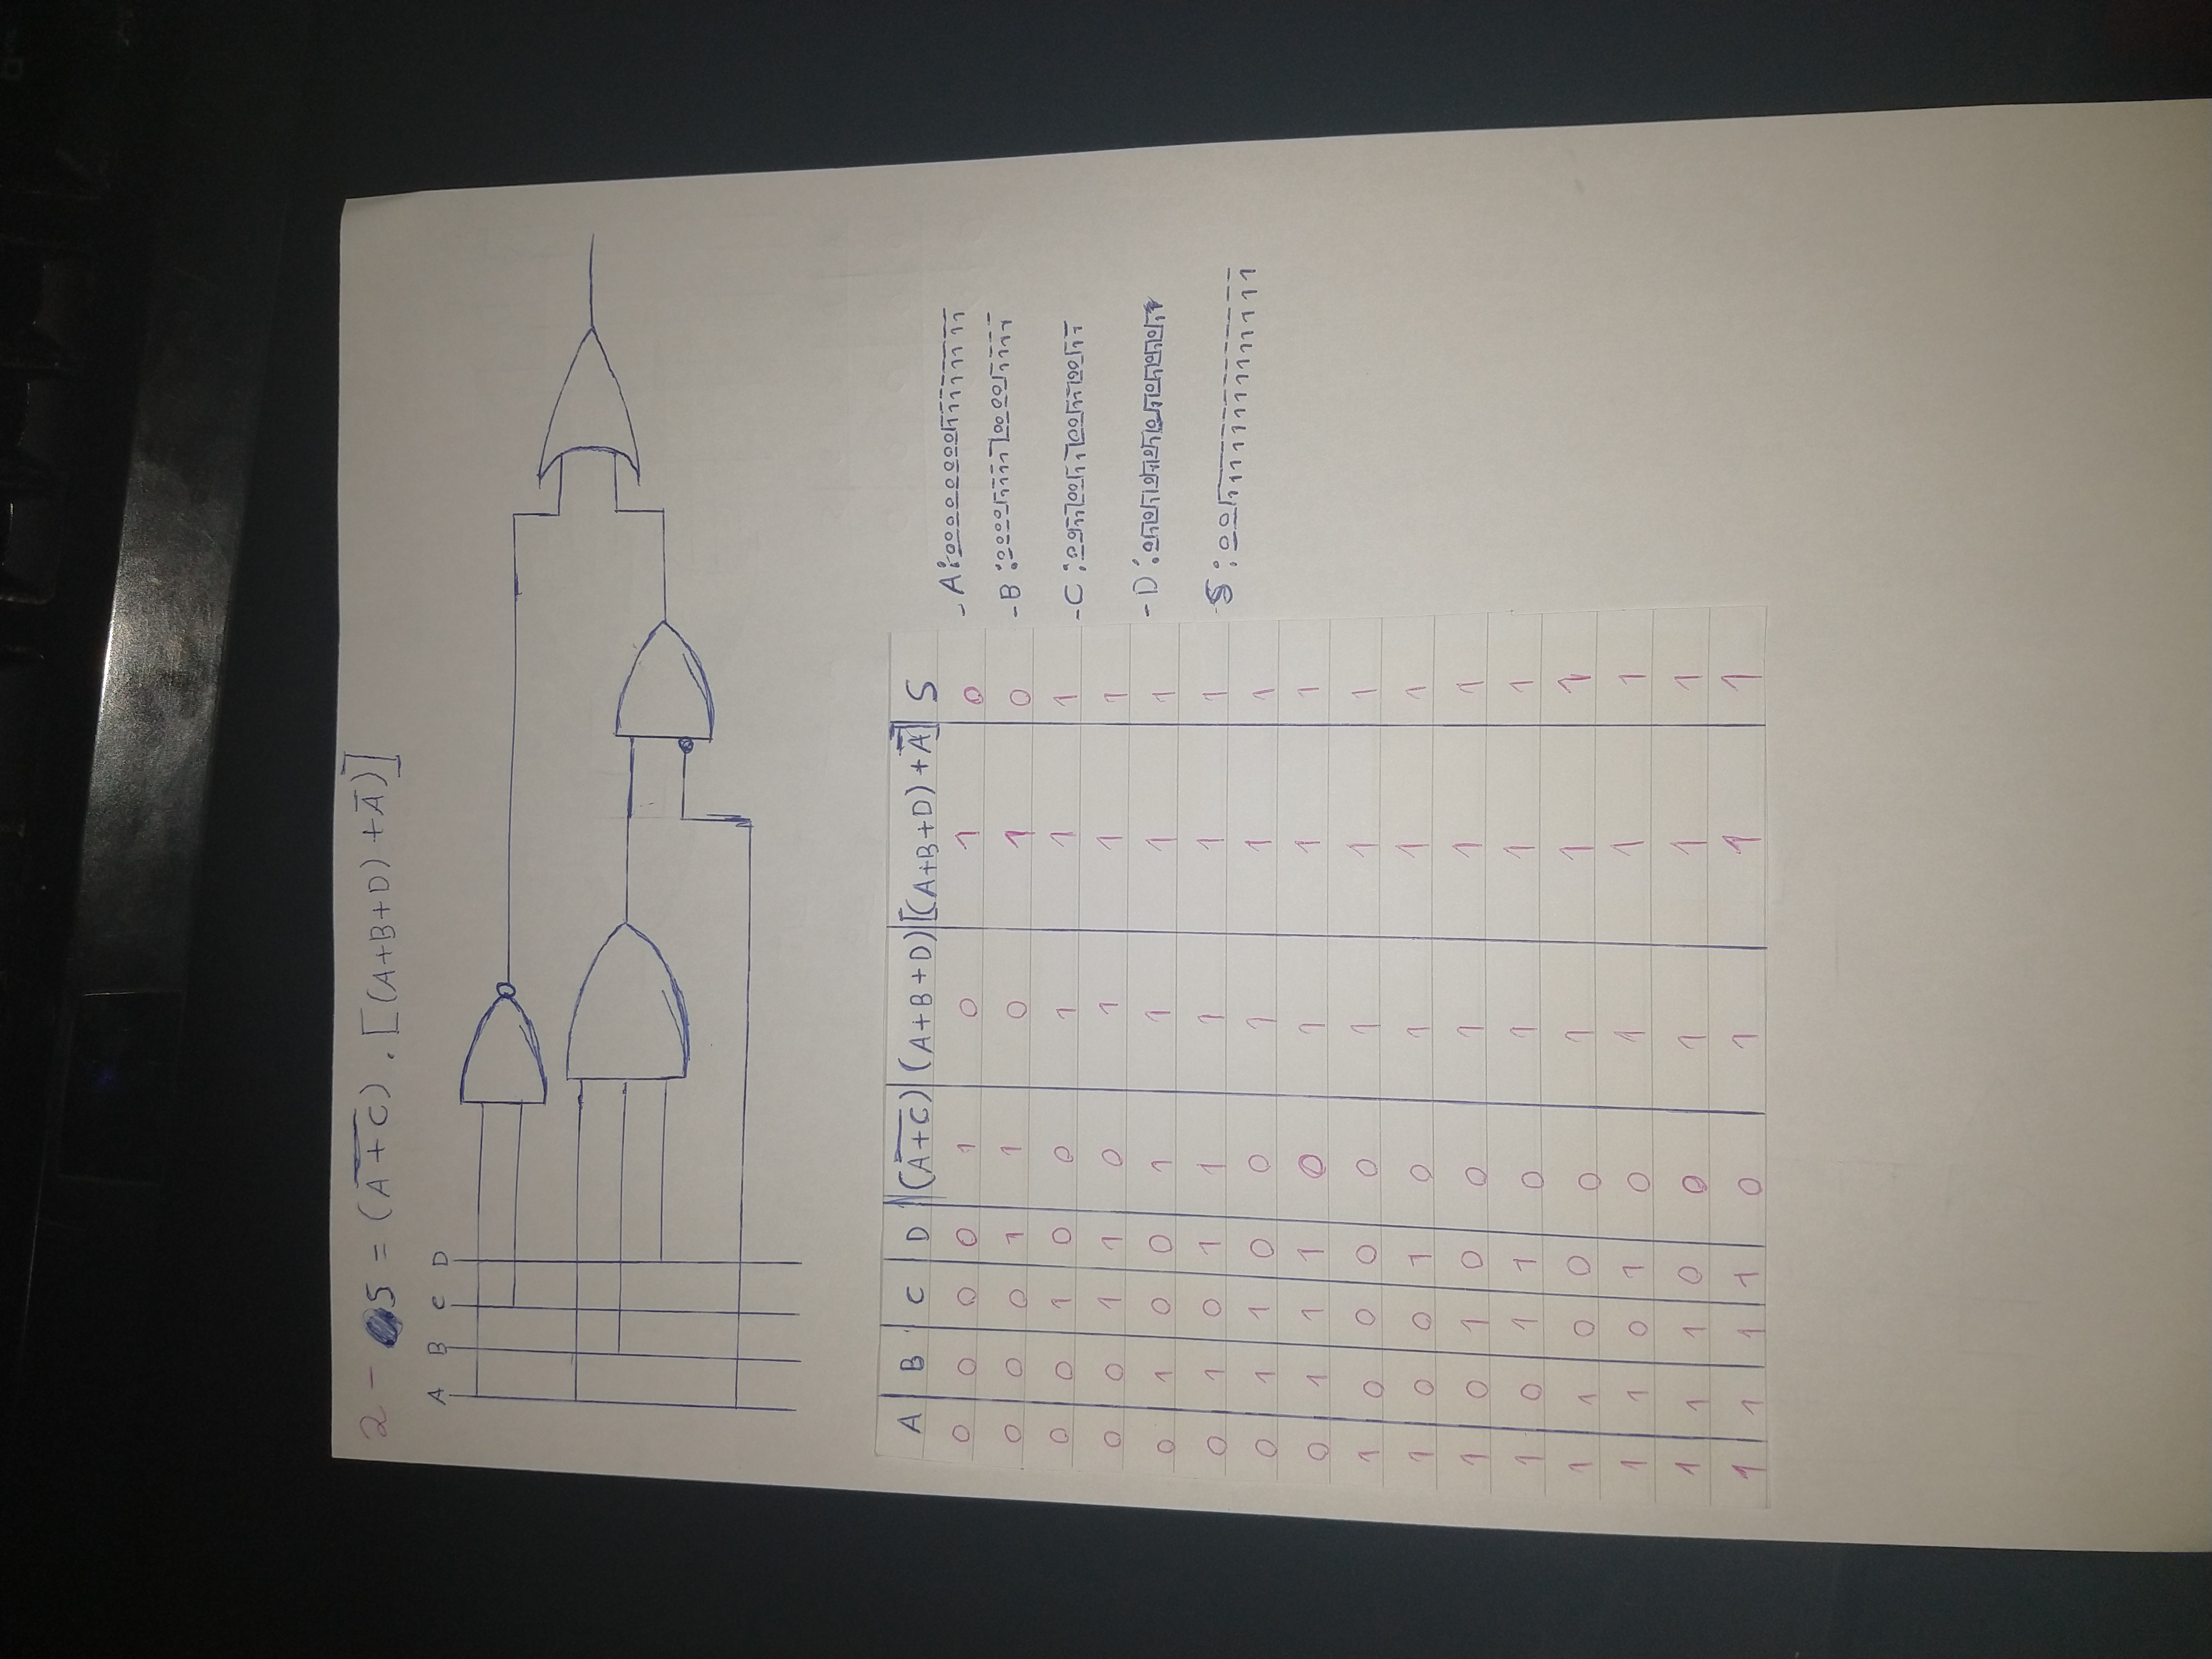 2 - S = (A̅+̅C̅) . [(A+B+D) + A̅)]
A B C D
A B C D (A̅+̅C̅) (A+B+D) [(A+B+D) + A̅] S
0 0 0 0 1 0 1 0
0 0 0 1 1 0 1 0
0 0 1 0 0 1 1 1
0 0 1 1 0 1 1 1
0 1 0 0 1 1 1 1
0 1 0 1 1 1 1 1
0 1 1 0 0 1 1 1
0 1 1 1 0 1 1 1
1 0 0 0 0 1 1 1
1 0 0 1 0 1 1 1
1 0 1 0 0 1 1 1
1 0 1 1 0 1 1 1
1 1 0 0 0 1 1 1
1 1 0 1 0 1 1 1
1 1 1 0 0 1 1 1
1 1 1 1 0 1 1 1
- A: 0000000011111111
- B: 0000111100001111
- C: 0011001100110011
- D: 0101010101010101
- S: 0011111111111111